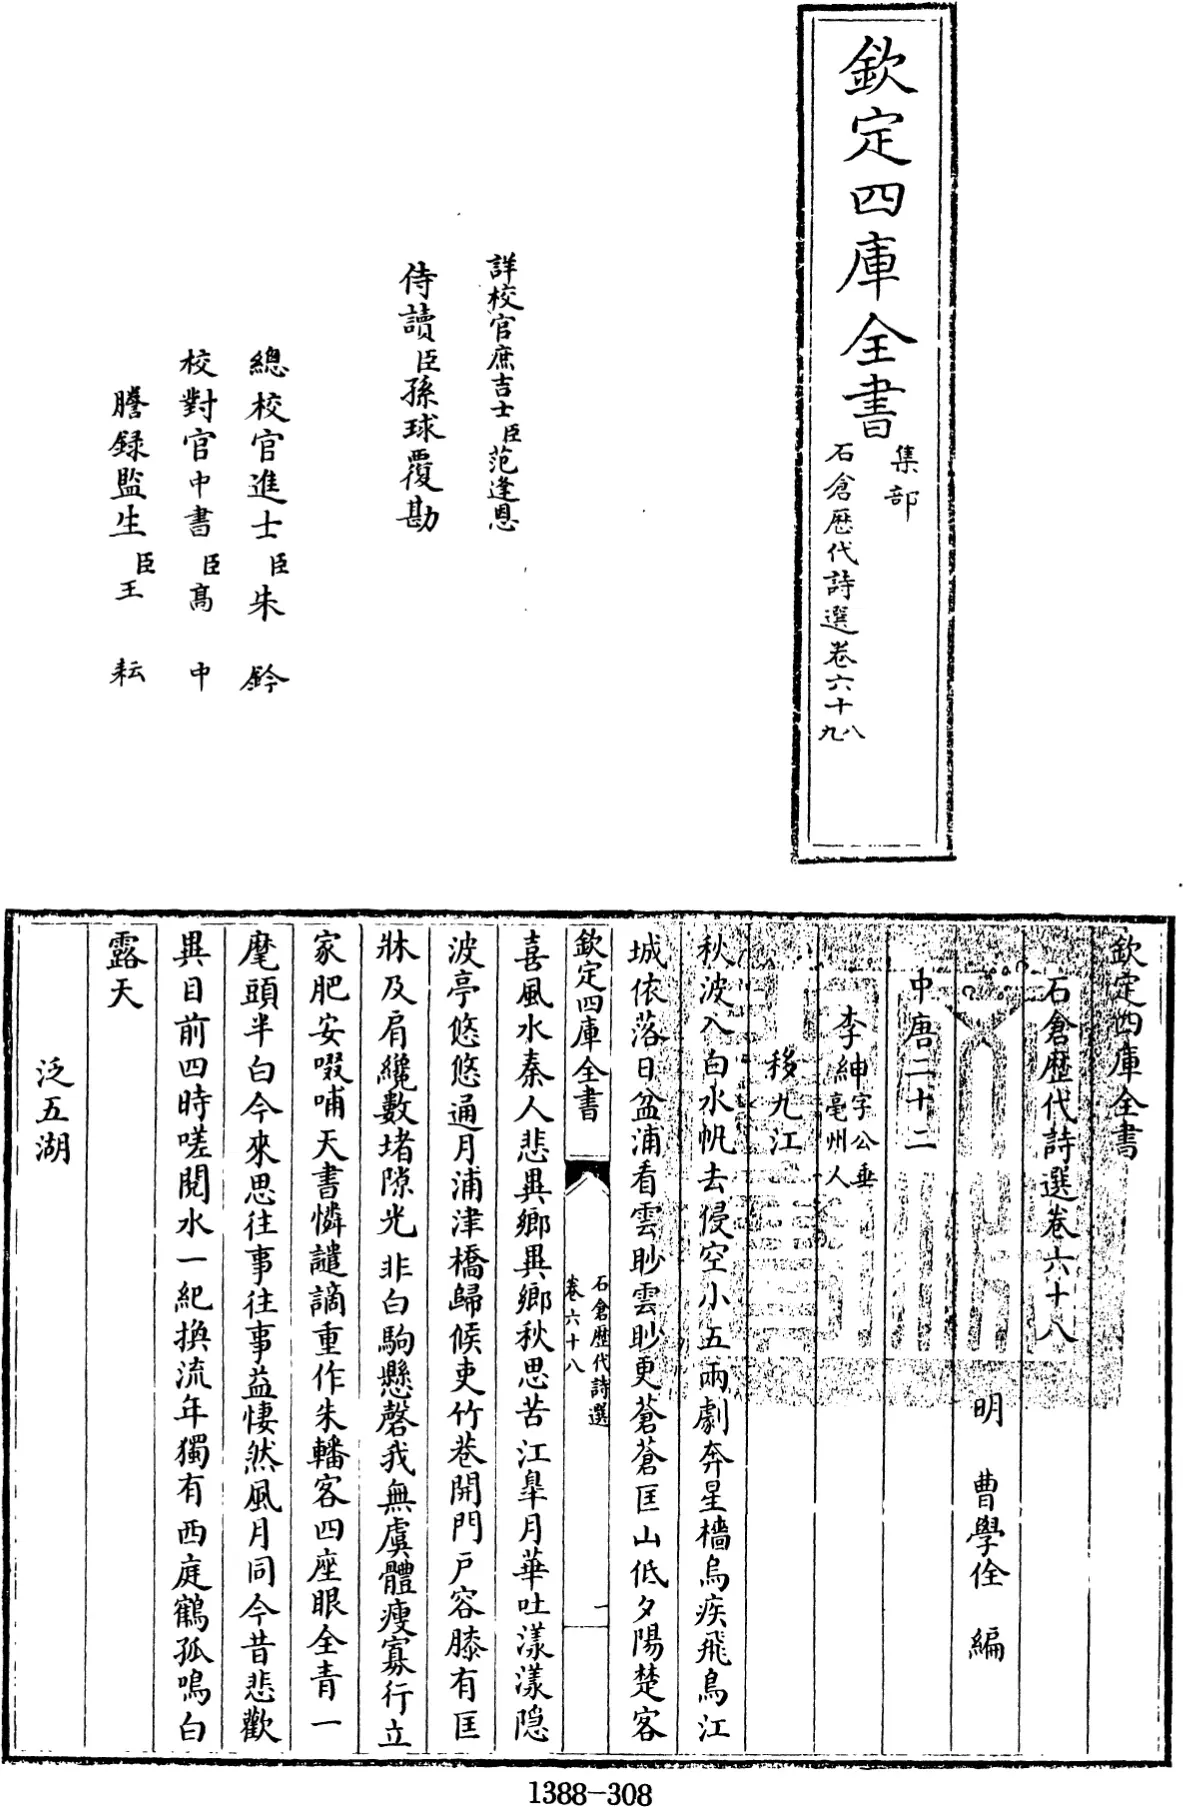 欽定四庫全書
集部
石倉歷代詩選卷六十八
九
詳校官庶吉士臣范逢恩
侍讀臣孫球覆勘
總校官進士臣朱鈐
校對官中書臣高中
謄録監生臣王耘
欽定四庫全書
石倉歷代詩選卷六十八
明 曹學佺 編
中唐二十二
李紳字公垂
亳州人
移九江
秋波入白水帆去侵空小五兩劇奔星檣烏疾飛鳥江
城依落日盆浦看雲眇雲眇更蒼蒼匡山低夕陽楚客
欽定四庫全書
石倉歷代詩選
卷六十八
一
喜風水秦人悲異鄉異鄉秋思苦江皋月華吐漾漾隱
波亭悠悠通月浦津橋歸候吏竹巷開門戶容膝有匡
牀及肩纔數堵隙光非白駒懸磬我無虞體瘦寡行立
家肥安啜哺天書憐譴謫重作朱轓客四座眼全青一
麾頭半白今來思往事往事益悽然風月同今昔悲歡
異目前四時嗟閱水一紀換流年獨有西庭鶴孤鳴白
露天
泛五湖
1388-308